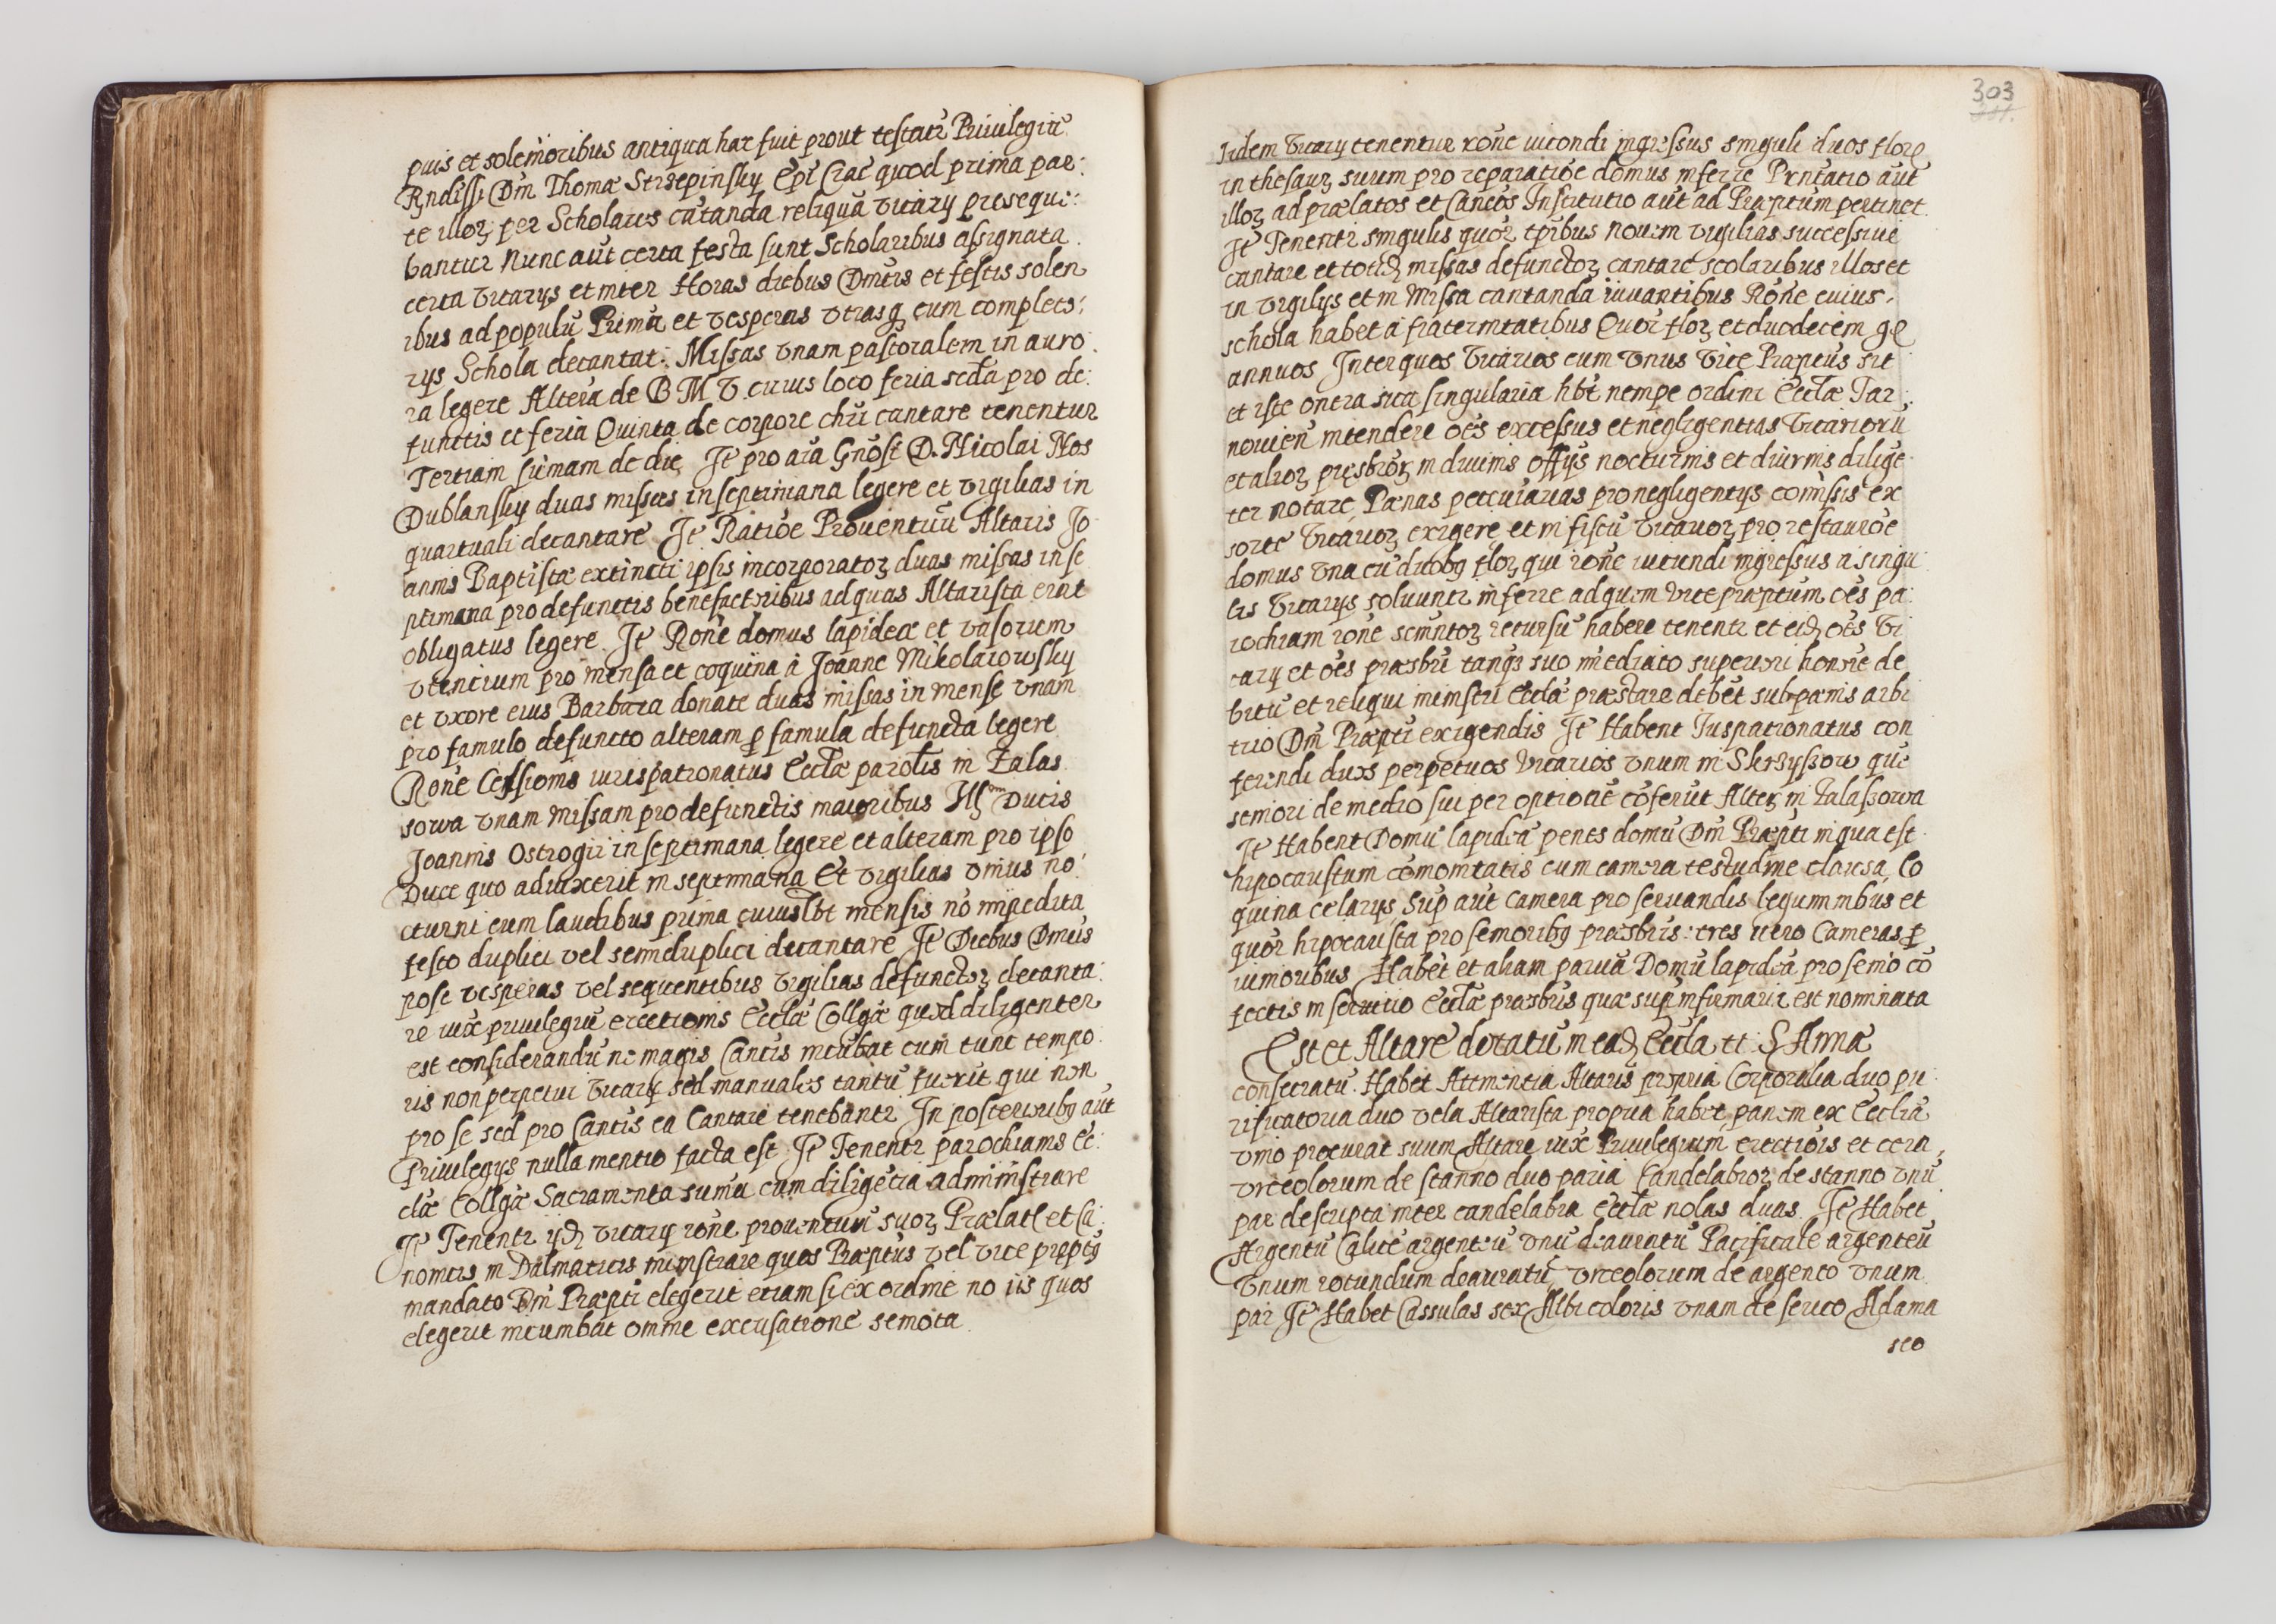 puis et solemioribus antiqua hac fuit prout testatr Priuilegiū
Rndiss: Dni Thomæ Strzepinsky Epi Crac quod prima par:
te illoʒ per Scholares cātanda reliqua vicary prosequi:
bantur Nunc aūt certa festa sunt Scholaribus assignata
certa vicarys et inter Horas diebus Dnicis et festis solen
ibus ad populū Primā et vesperas vtrasqꝫ cum completo:
rys Schola decantat: Missas vnam pastoralem in auro
ra legere Altera de B M V cuius loco feria scda pro de:
functis et feria Quinta de corpore chri cantare tenentur
Tertiam sūmam de die. It pro ara Gnosi D. Nicolai Nos
Dublansky duas missas in septimana legere et vigilias in
quartuali decantare It Ratioē Prouentuū Altaris Jo
annis Baptistæ extincti ipsis incorporatoʒ duas missas in se
ptimana pro defunctis benefactoribus ad quas Altarista erat
obligatus legere It Rōne domus lapideæ et vasorum
vtencium pro mensa et coquina à Joanne Mikolaiowsky
et vxore eius Barbara donate duas missas in mense vnam
pro famulo defuncto alteram p famula defuncta legere
Rōne Cessionis iurispatronatus Ecclæ parolis in Zalas
sowa vnam missam pro defunctis maioribus Illm Ducis
Joannis Ostrogij in septimana legere et alteram pro ipso
Duce quo aduixerit in septimana Et vigilias vnius no:
cturni cum laudibus prima cuiuslbt mensis nō impedita
festo duplici vel semiduplici decantare It Diebus Dnicis
post vesperas vel sequentibus vigilias defunctoʒ decanta:
re iux priuilegiū erectionis Ecclæ Collgæ quod diligenter
est considerandū ne magis Cancis incūbat cum tunc tempo:
ris non perpetui vicary sed manuales tantū fuerūt qui non
pro se sed pro Cancis ea Cantare tenebantr. In posterioribꝫ aūt
Priuilegys nulla mentio facta est It Tenentr parochianis Ec:
clæ Collgæ Sacramenta sūma cum diligētia administrare
It Tenentr ijdē vicary rōne prouentuum suoʒ Prælatis et Ca:
nonicis in Dalmaticis ministrare quos Præptus vel vice præptꝫ
mandato Dni Præpti elegerit etiam si ex ordine nō iis quos
elegerit incumbat omne excusatione semota
303
Iidem Vicary tenentur rōne iucondi ingressus singuli duos flore
in thesauʒ suum pro reparatiōe domus inferre Prntatio aūt
illoʒ ad prælatos et Cancos Institutio aūt ad Præptum pertinet
It Tenentr singulis quor tpribus nouem vigilias successiue
cantare et totidē missas defunctoʒ cantare scolaribus illos et
in vigilys et in Missa cantanda iuuantibus Rōne cuius
schola habet à fraternitatibus Quor floʒ et duodecim gꝫ
annuos Inter quos Vicarios cum vnus Vice Præptus sit
et iste onera sua singularia hbt nempe ordini Ecclæ Tar:
nouien intendere oēs excessus et negligentias Vicarioru
et alioʒ præsbroʒ in diuinis officijs nocturnis et diurnis dilige
ter notare, Pænas pecuiarias pro negligentys comissis ex
sorte Vicarioʒ exigere et in fiscū vicarioʒ pro restauroē
domus vna cū duobꝫ floʒ qui rōne iucundi ingressus a singu
lis Vicarys soluuntr inferre ad quem vice præptum oēs pa:
rochiam rōne scmntoʒ recursū habere tenentr et eidē oēs Vi
cary et oēs præsbri tanqꝫ suo imediato superiori honore de
bitū et reliqui ministri Ecclæ præstare debet sub pænis arbi
trio Dni Præpti exigendis It Habent Iuspatronatus con
ferendi duos perpetuos vicarios vnum in Skrzyszow quē
seniori de medio sui per optioē cōferut Alteʒ in Zalassowa
It Habent Domū lapideā penes domū Dni Præpti in qua est
hipocaustum cōmonitatis cum camera testudine clausa, Co
quina celarys, Sup aūt Camera pro seruandis leguminibus et
quor hipocausta pro senioribꝫ præsbris: tres vero Cameras p
iunioribus Habēt et aliam paruā Domū lapideā pro senio cō
fectis in seruitio Ecclæ præsbris quæ sup infirmaria est nominata
Est et Altare dotatū in eadē Eccla tt S Annæ
consecratū. Habet Attinentia Altaris propria Corporalia duo pu
rificatoria duo vela Altarista propria habet, panem ex Ecclia
vino procurat suum Altare iux Priuilegium erectiois et cera,
vrceolorum de stanno duo paria Candelabroʒ de stanno vnū
par descripta inter candelabra Ecclæ nolas duas. It Habet
Argentū Calicē argenteū vnū deauratū Pacificale argenteū
Vnum rotundum deauratū, vrceolorum de argento vnum
par It Habet Cassulas sex Albi coloris vnam de serico Adama
sco